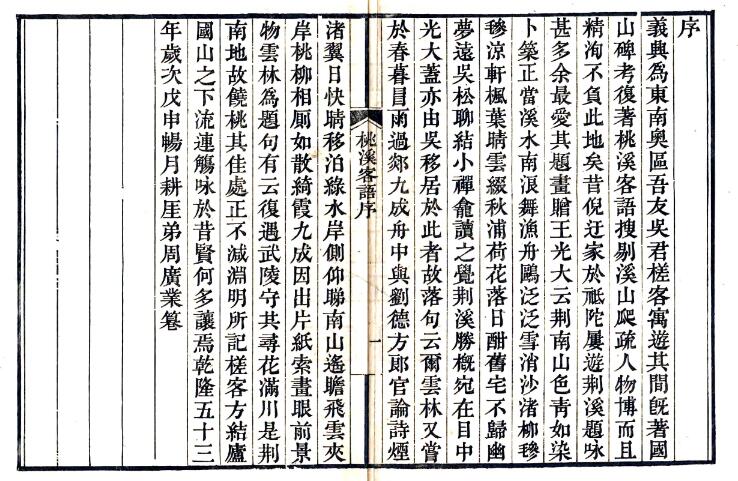 序
義興為東南奧區吾友吳君槎客寓遊其間旣著國
山碑考復著桃溪客語搜剔溪山爬疏人物博而且
精洵不負此地矣昔倪迂家於祗陀屢遊荆溪題咏
甚多余最愛其題畫贈王光大云荆南山色靑如染
卜築正當溪水南浪舞漁舟鷗泛泛雪消沙渚柳毶
毶涼軒楓葉晴雲綴秋浦荷花落日酣舊宅不歸幽
夢遠吳松聊結小禪龕讀之覺荆溪勝槪宛在目中
光大蓋亦由吳移居於此者故落句云爾雲林又嘗
於春暮冒雨過郯九成舟中與劉德方郎官論詩煙
桃溪客語序
一
渚翼日快晴移泊綠水岸側仰睇南山遙瞻飛雲夾
岸桃柳相厠如散綺霞九成因出片紙索畫眼前景
物雲林為題句有云復遇武陵守共尋花滿川是荆
南地故饒桃其佳處正不減淵明所記槎客方結廬
國山之下流連觴咏於昔賢何多讓焉乾隆五十三
年歲次戊申暢月耕厓弟周廣業篹